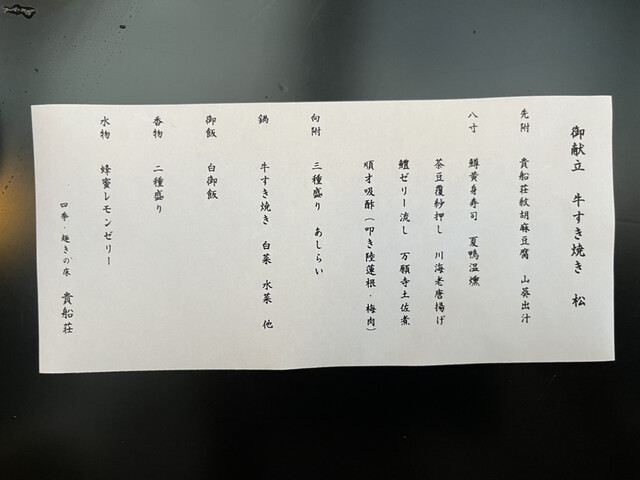 御献立 牛すき焼き 松
先附 貴船荘紋胡麻豆腐 山葵出汁
八寸 鱒黄身寿司 夏鴨温燻
茶豆覆紗押し 川海老唐揚げ
鱧ゼリー流し 万願寺土佐煮
順才吸酢（叩き陸蓮根・梅肉）
向附 三種盛り あしらい
鍋 牛すき焼き 白菜 水菜 他
御飯 白御飯
香物 二種盛り
水物 蜂蜜レモンゼリー
四季・趣きの床 貴船荘